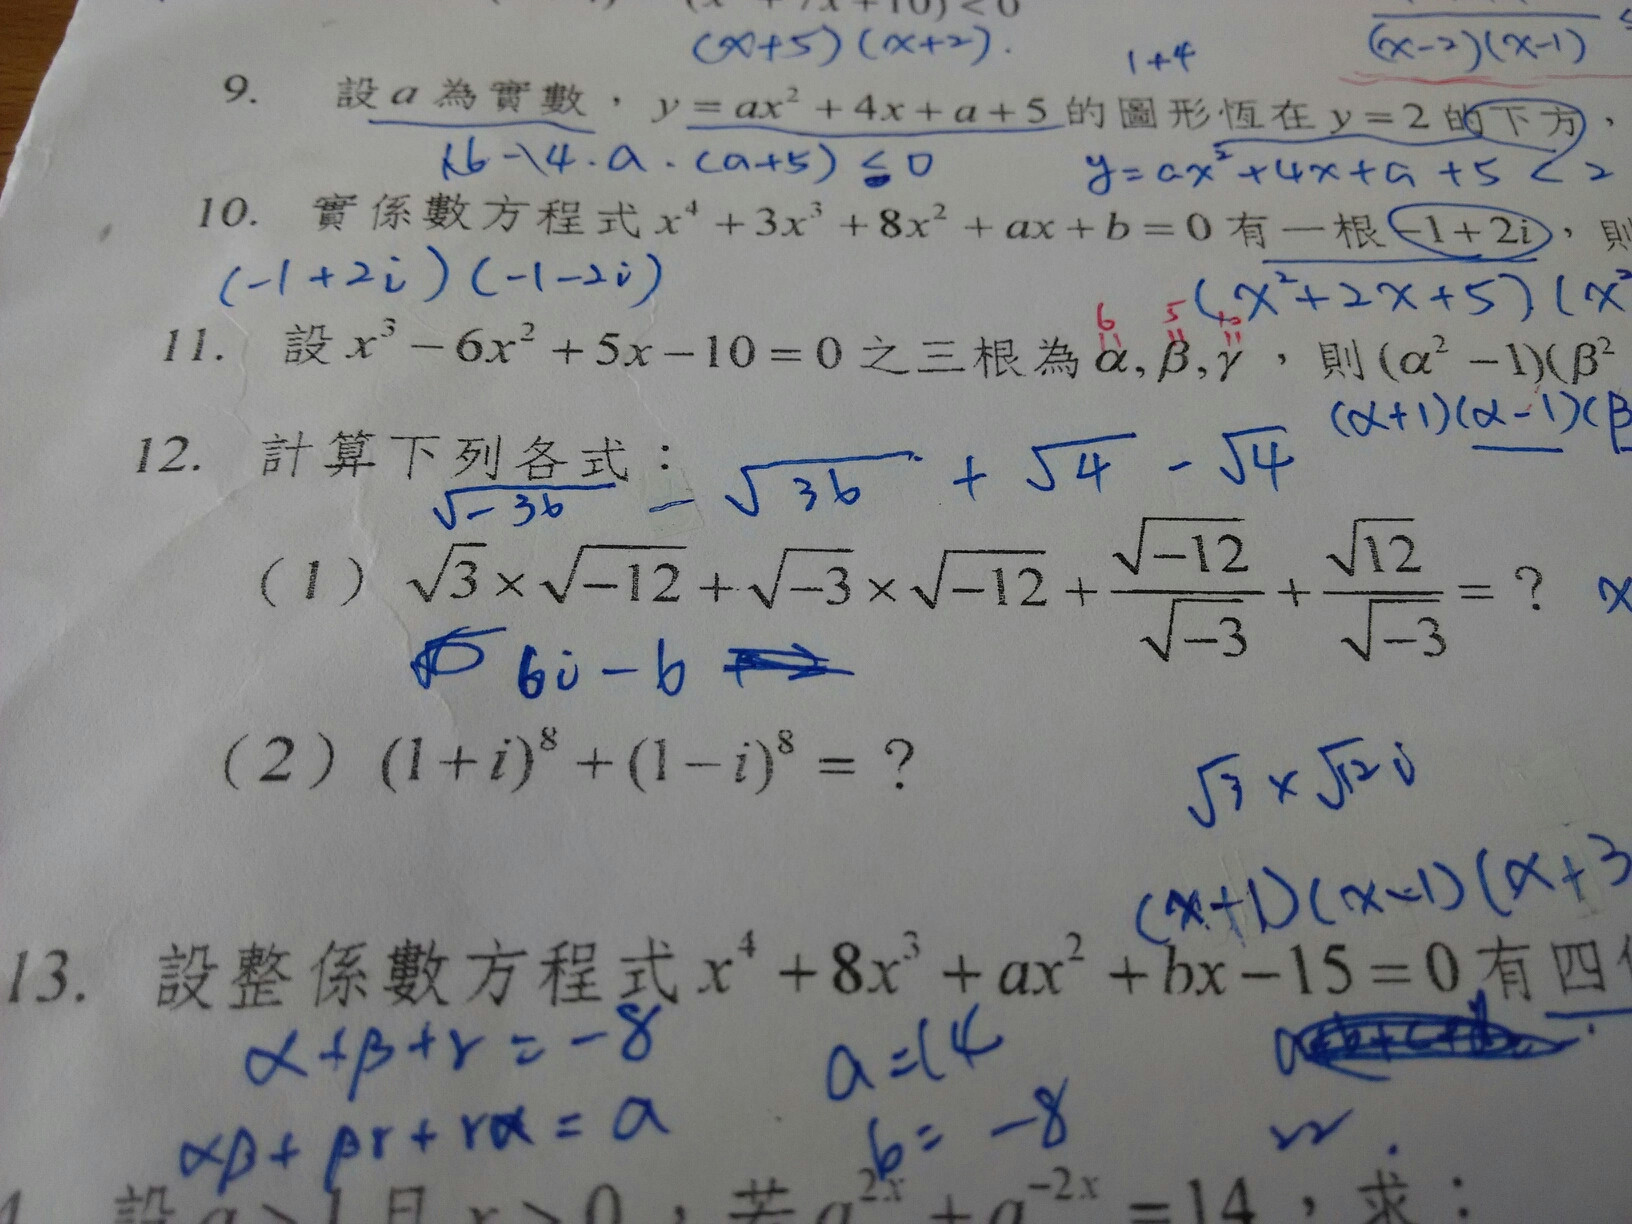 (x+5)(x+2).
(x-2)(x-1)
1+4
9. 設 a 為實數，y = ax² + 4x + a + 5 的圖形恆在 y = 2 的下方，
16-4·a·(a+5) ≤ 0
y = ax² + 4x + a + 5 < 2
10. 實係數方程式 x⁴ + 3x³ + 8x² + ax + b = 0 有一根 -1 + 2i，則
(-1+2i)(-1-2i)
(x²+2x+5)(x²
6 5
11. 設 x³ - 6x² + 5x - 10 = 0 之三根為 α, β, γ，則 (α² - 1)(β²
(α+1)(α-1)(β
12. 計算下列各式：
√-36 - √36 + √4 - √4
(1) √3 × √-12 + √-3 × √-12 + √-12/√-3 + √12/√-3 = ?
x
6i - 6
(2) (1+i)⁸ + (1-i)⁸ = ?
√3 × √12 i
(x+1)(x-1)(x+3
13. 設整係數方程式 x⁴ + 8x³ + ax² + bx - 15 = 0 有四
α+β+γ = -8
a = 14
αβ+βγ+γα = a
b = -8
設 a > 1 且 x > 0，若 a²ˣ + a⁻²ˣ = 14，求：